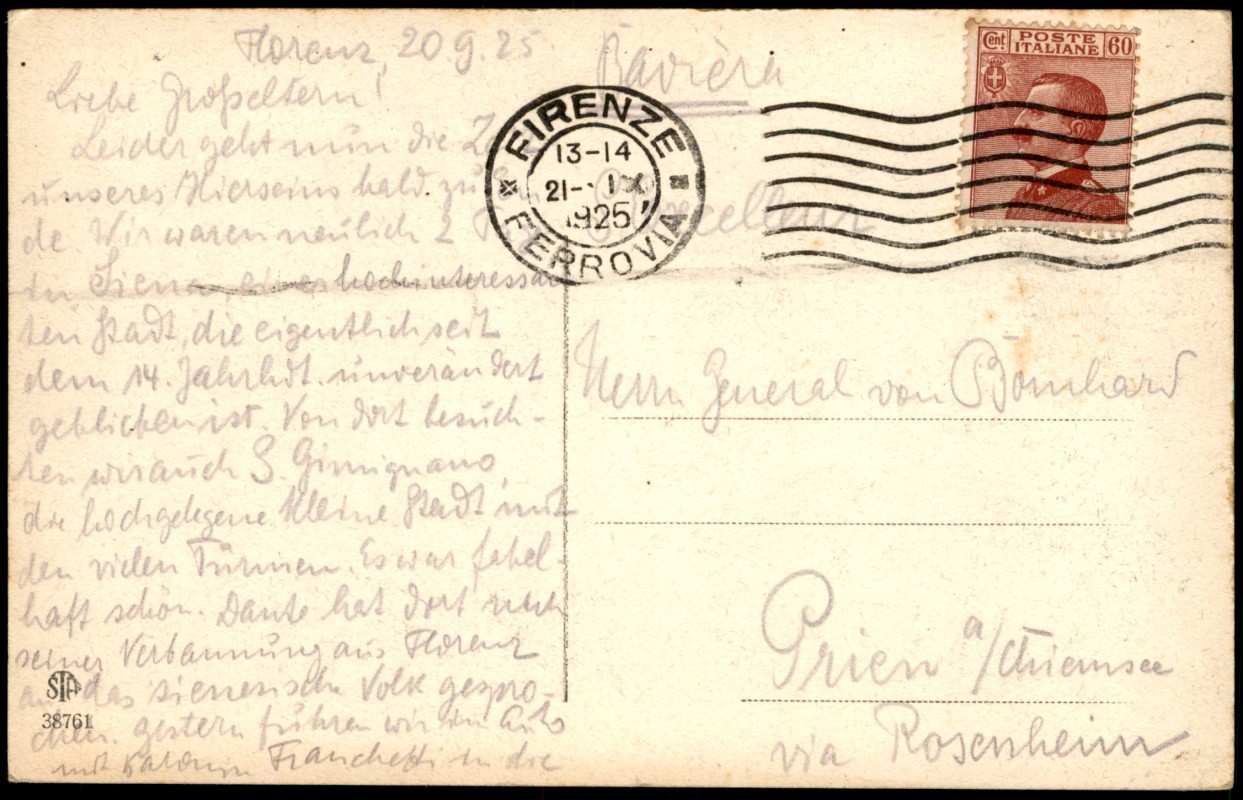 Florenz, 20 9. 25.
Liebe Großeltern!
Leider geht nun die
unseres Hierseins bald zu
de Wir waren neulich 2
in Siena, einer hochinteressan
ten Stadt, die eigentlich seit
dem 14. Jahrhdt. unverändert
geblieben ist. Von dort besuch-
ten wir auch S. Gimignano,
die hochgelegene kleine Stadt mit
den vielen Türmen. Es war fabel-
haft schön. Dante hat dort nach
seiner Verbannung aus Florenz
an das sienesische Volk gespro-
chen. Gestern fuhren wir im Auto
mit Baronin Franchetti in die
STA
38761
Bavièra
POSTE
ITALIANE
Cent 60
FIRENZE
13-14
21- IX
1925
FERROVIA
Excellenz
Herrn General von Bomhard
Prien a/Chiemsee
via Rosenheim.